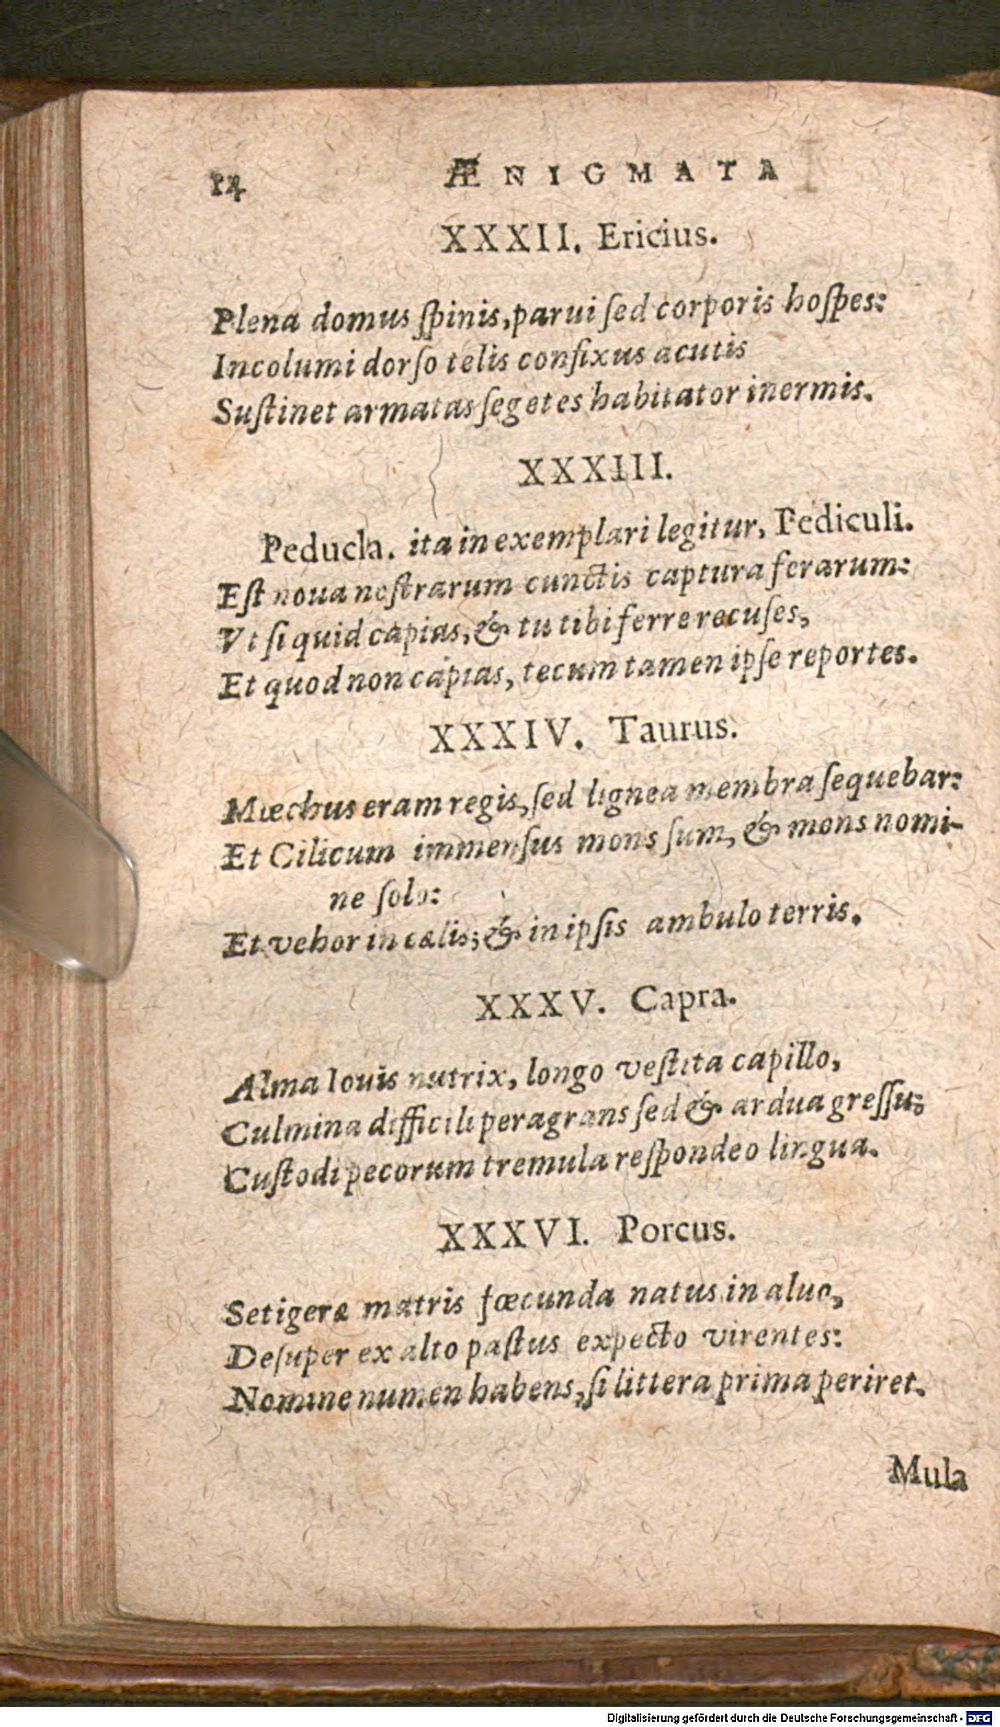 14 ÆNIGMATA
XXXII. Ericius.
Plena domus ſpinis, parui ſed corporis hoſpes:
Incolumi dorſo telis confixus acutis
Suſtinet armatas ſegetes habitator inermis.
XXXIII.
Peducla. ita in exemplari legitur, Pediculi.
Eſt noua noſtrarum cunctis captura ferarum:
Vt ſi quid capias, & tu tibi ferre recuſes,
Et quod non capias, tecum tamen ipſe reportes.
XXXIV. Taurus.
Mœchus eram regis, ſed lignea membra ſequebar:
Et Cilicum immenſus mons ſum, & mons nomi-
ne ſolo:
Et vehor in cælis; & in ipſis ambulo terris.
XXXV. Capra.
Alma Iouis nutrix, longo veſtita capillo,
Culmina difficili peragrans ſed & ardua greſſu;
Cuſtodi pecorum tremula reſpondeo lingua.
XXXVI. Porcus.
Setigeræ matris fœcunda natus in aluo,
Deſuper ex alto paſtus expecto virentes:
Nomine numen habens, ſi littera prima periret.
Mula
Digitalisierung gefördert durch die Deutsche Forschungsgemeinschaft - DFG